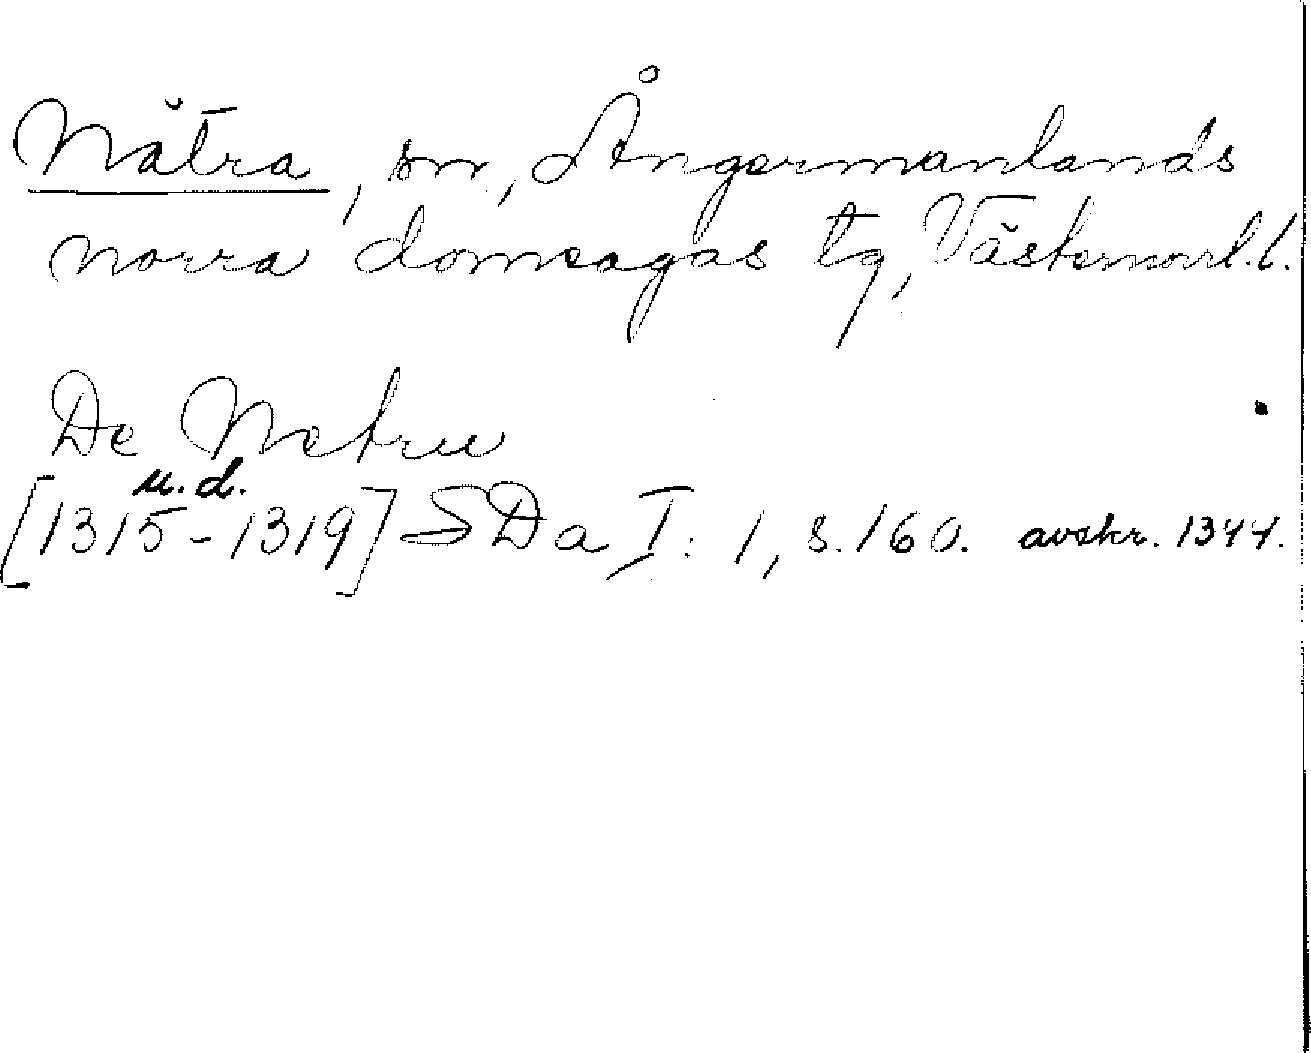 Nätra, sn, Ångermanlands
norra domsagas tg, Västernorrl. l.
De Netru
u.d.
[1315-1319] SDa I: 1, s. 160. avskr. 1344.